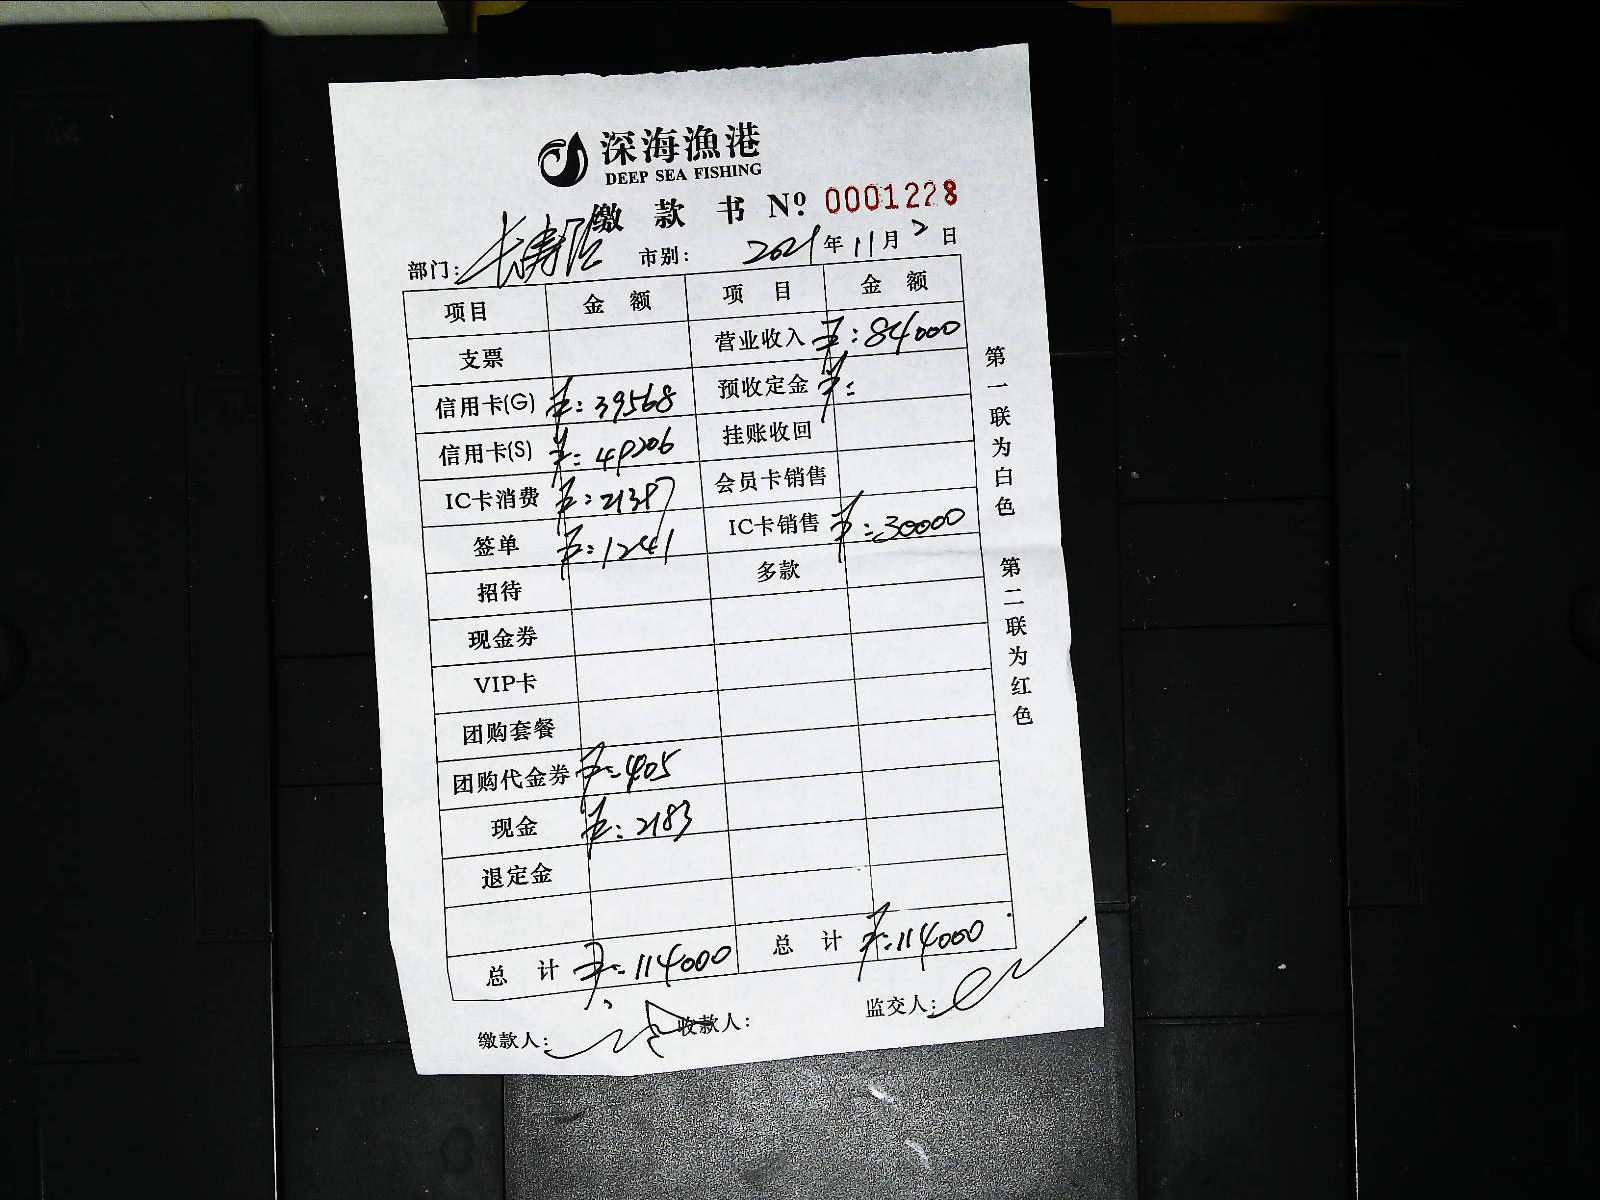 深海漁港
DEEP SEA FISHING
缴款书 Nº 0001228
部门: 长寿路 市别: 2021年11月2日
项目 金额 项目 金额
支票 营业收入 ¥:84000
信用卡(G) ¥:39568 预收定金 ¥:
信用卡(S) ¥:49206 挂账收回
IC卡消费 ¥:21397 会员卡销售
签单 ¥:1241 IC卡销售 ¥:30000
招待 多款
现金券
VIP卡
团购套餐
团购代金券 ¥:405
现金 ¥:2183
退定金
总计 ¥:114000 总计 ¥:114000
缴款人: 收款人: 监交人:
第一联为白色 第二联为红色